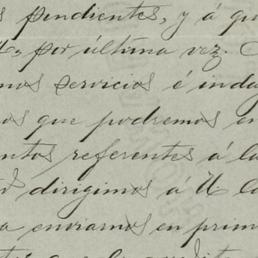 pendientes, y á qu
por última vez.
mos servicios é inda
os que podremos en
ntos referentes á la
dirigimos á U. la
a enviarnos en prim